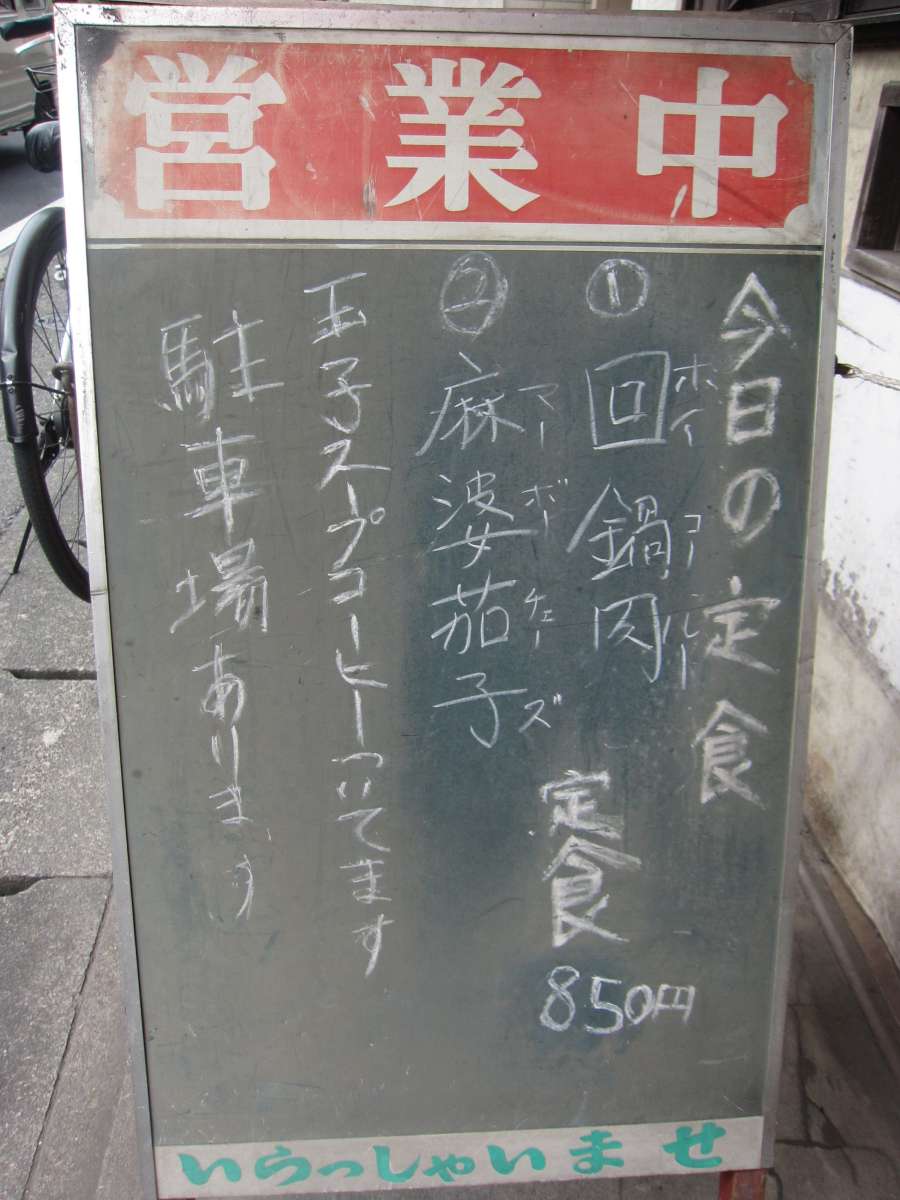 営業中
今日の定食
① 回鍋肉
ホイコールー
② 麻婆茄子
マーボーチェーズ
定食
850円
玉子スープコーヒーついてます
駐車場あります
いらっしゃいませ